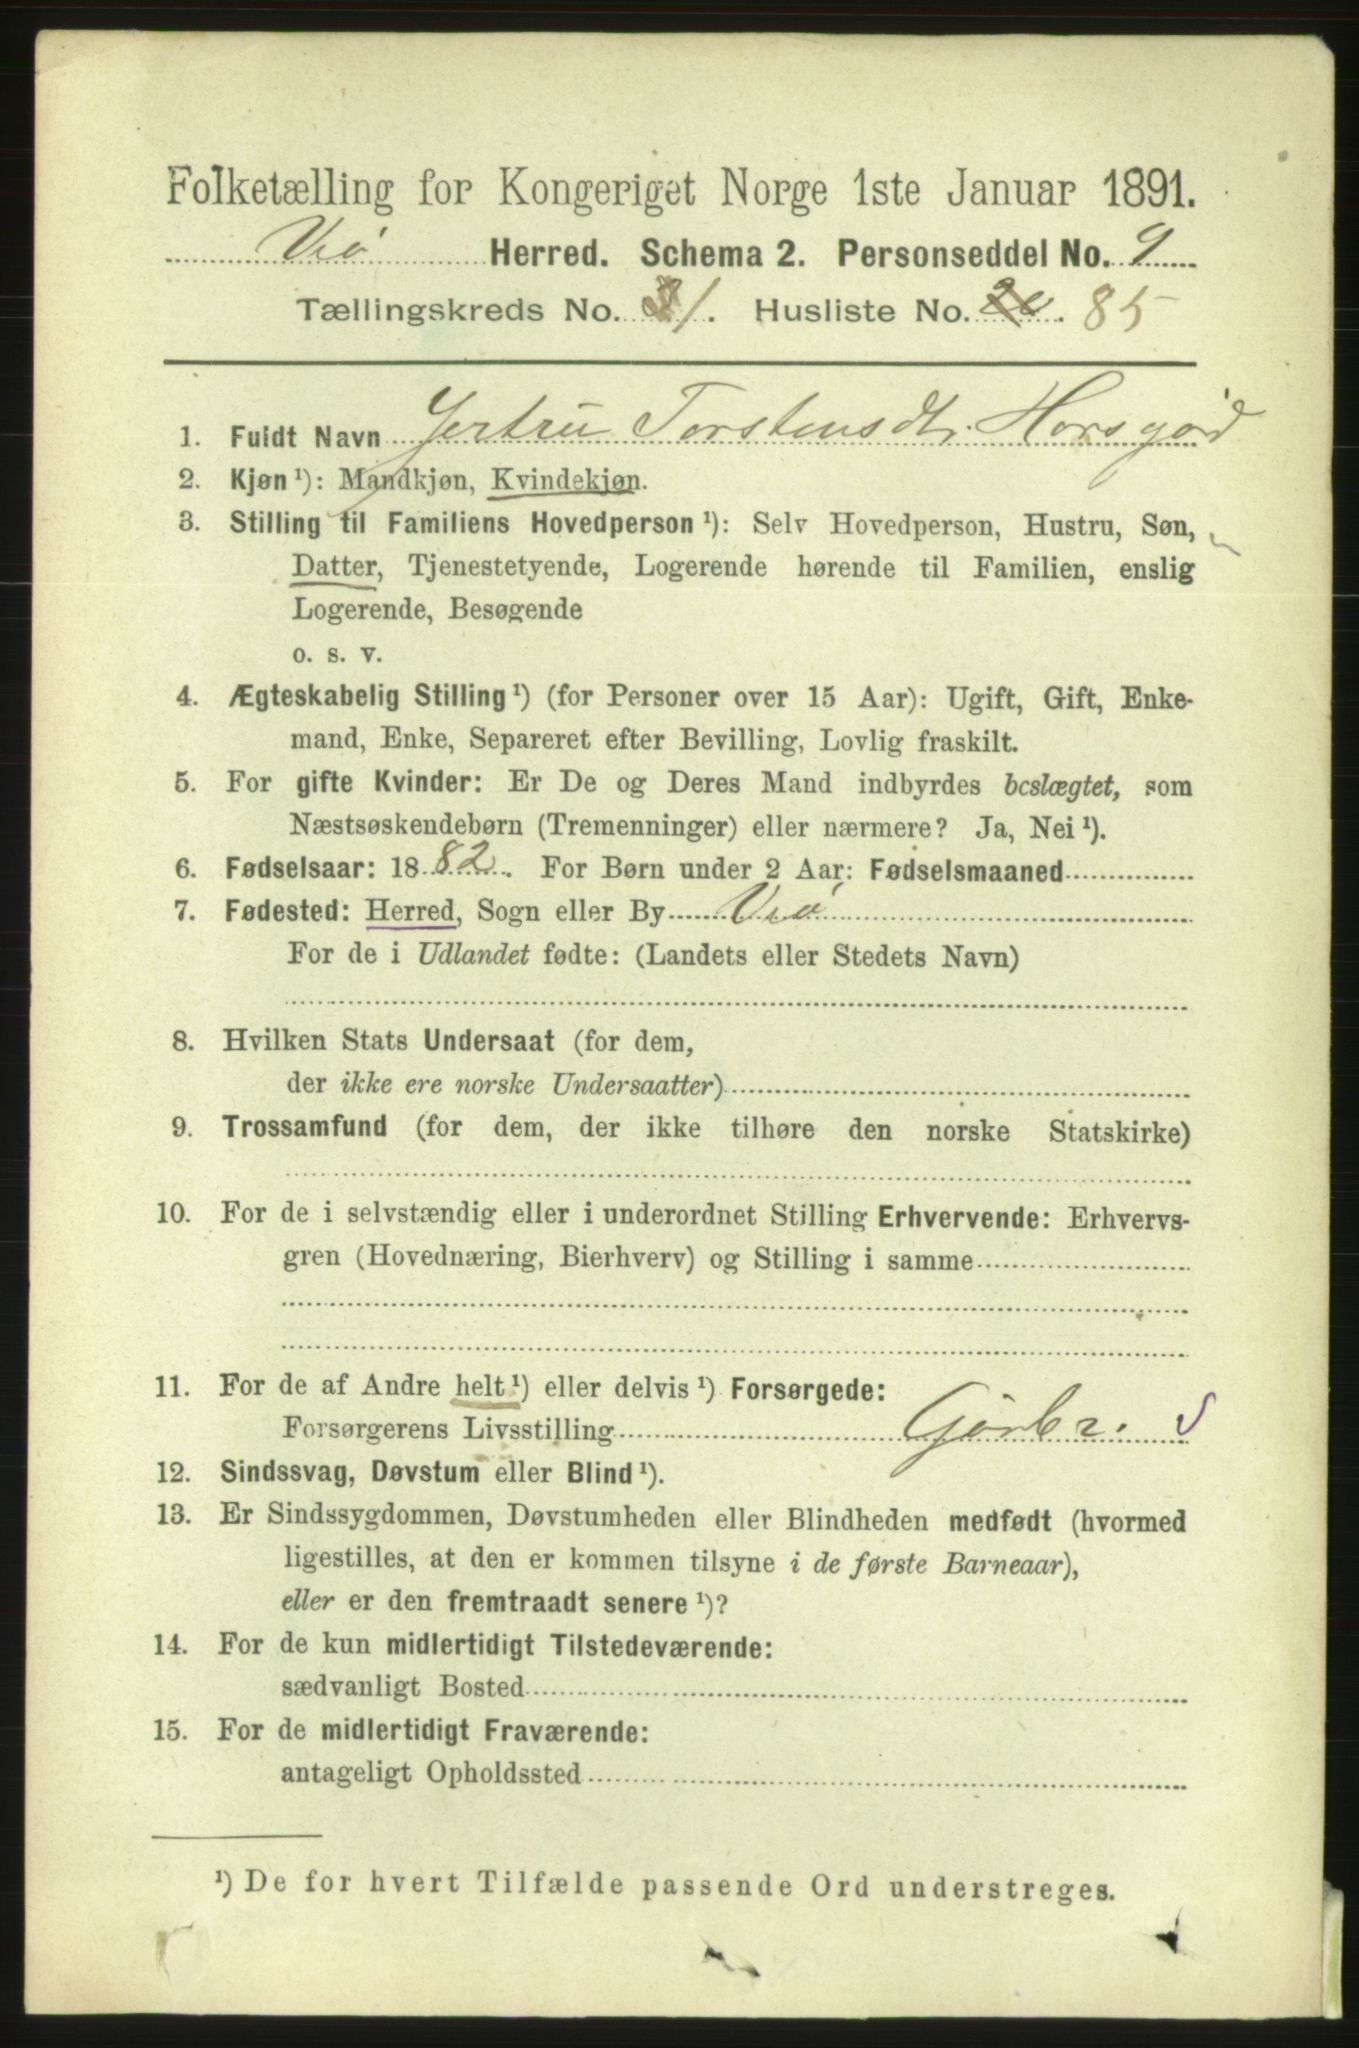 Folketælling for Kongeriget Norge 1ste Januar 1891.
Veø Herred. Schema 2. Personseddel No. 9
Tællingskreds No. 1. Husliste No. 85
1. Fuldt Navn Gertru Torstensdtr. Horsgård
2. Kjøn ¹): Mandkjøn, Kvindekjøn.
3. Stilling til Familiens Hovedperson ¹): Selv Hovedperson, Hustru, Søn,
Datter, Tjenestetyende, Logerende hørende til Familien, enslig
Logerende, Besøgende
o. s. v.
4. Ægteskabelig Stilling ¹) (for Personer over 15 Aar): Ugift, Gift, Enke-
mand, Enke, Separeret efter Bevilling, Lovlig fraskilt.
5. For gifte Kvinder: Er De og Deres Mand indbyrdes beslægtet, som
Næstsøskendebørn (Tremenninger) eller nærmere? Ja, Nei ¹).
6. Fødselsaar: 1882. For Børn under 2 Aar: Fødselsmaaned
7. Fødested: Herred, Sogn eller By Veø
For de i Udlandet fødte: (Landets eller Stedets Navn)
8. Hvilken Stats Undersaat (for dem,
der ikke ere norske Undersaatter)
9. Trossamfund (for dem, der ikke tilhøre den norske Statskirke)
10. For de i selvstændig eller i underordnet Stilling Erhvervende: Erhvervs-
gren (Hovednæring, Bierhverv) og Stilling i samme
11. For de af Andre helt ¹) eller delvis ¹) Forsørgede:
Forsørgerens Livsstilling Gårbr. S
12. Sindssvag, Døvstum eller Blind ¹).
13. Er Sindssygdommen, Døvstumheden eller Blindheden medfødt (hvormed
ligestilles, at den er kommen tilsyne i de første Barneaar),
eller er den fremtraadt senere ¹)?
14. For de kun midlertidigt Tilstedeværende:
sædvanligt Bosted
15. For de midlertidigt Fraværende:
antageligt Opholdssted
¹) De for hvert Tilfælde passende Ord understreges.